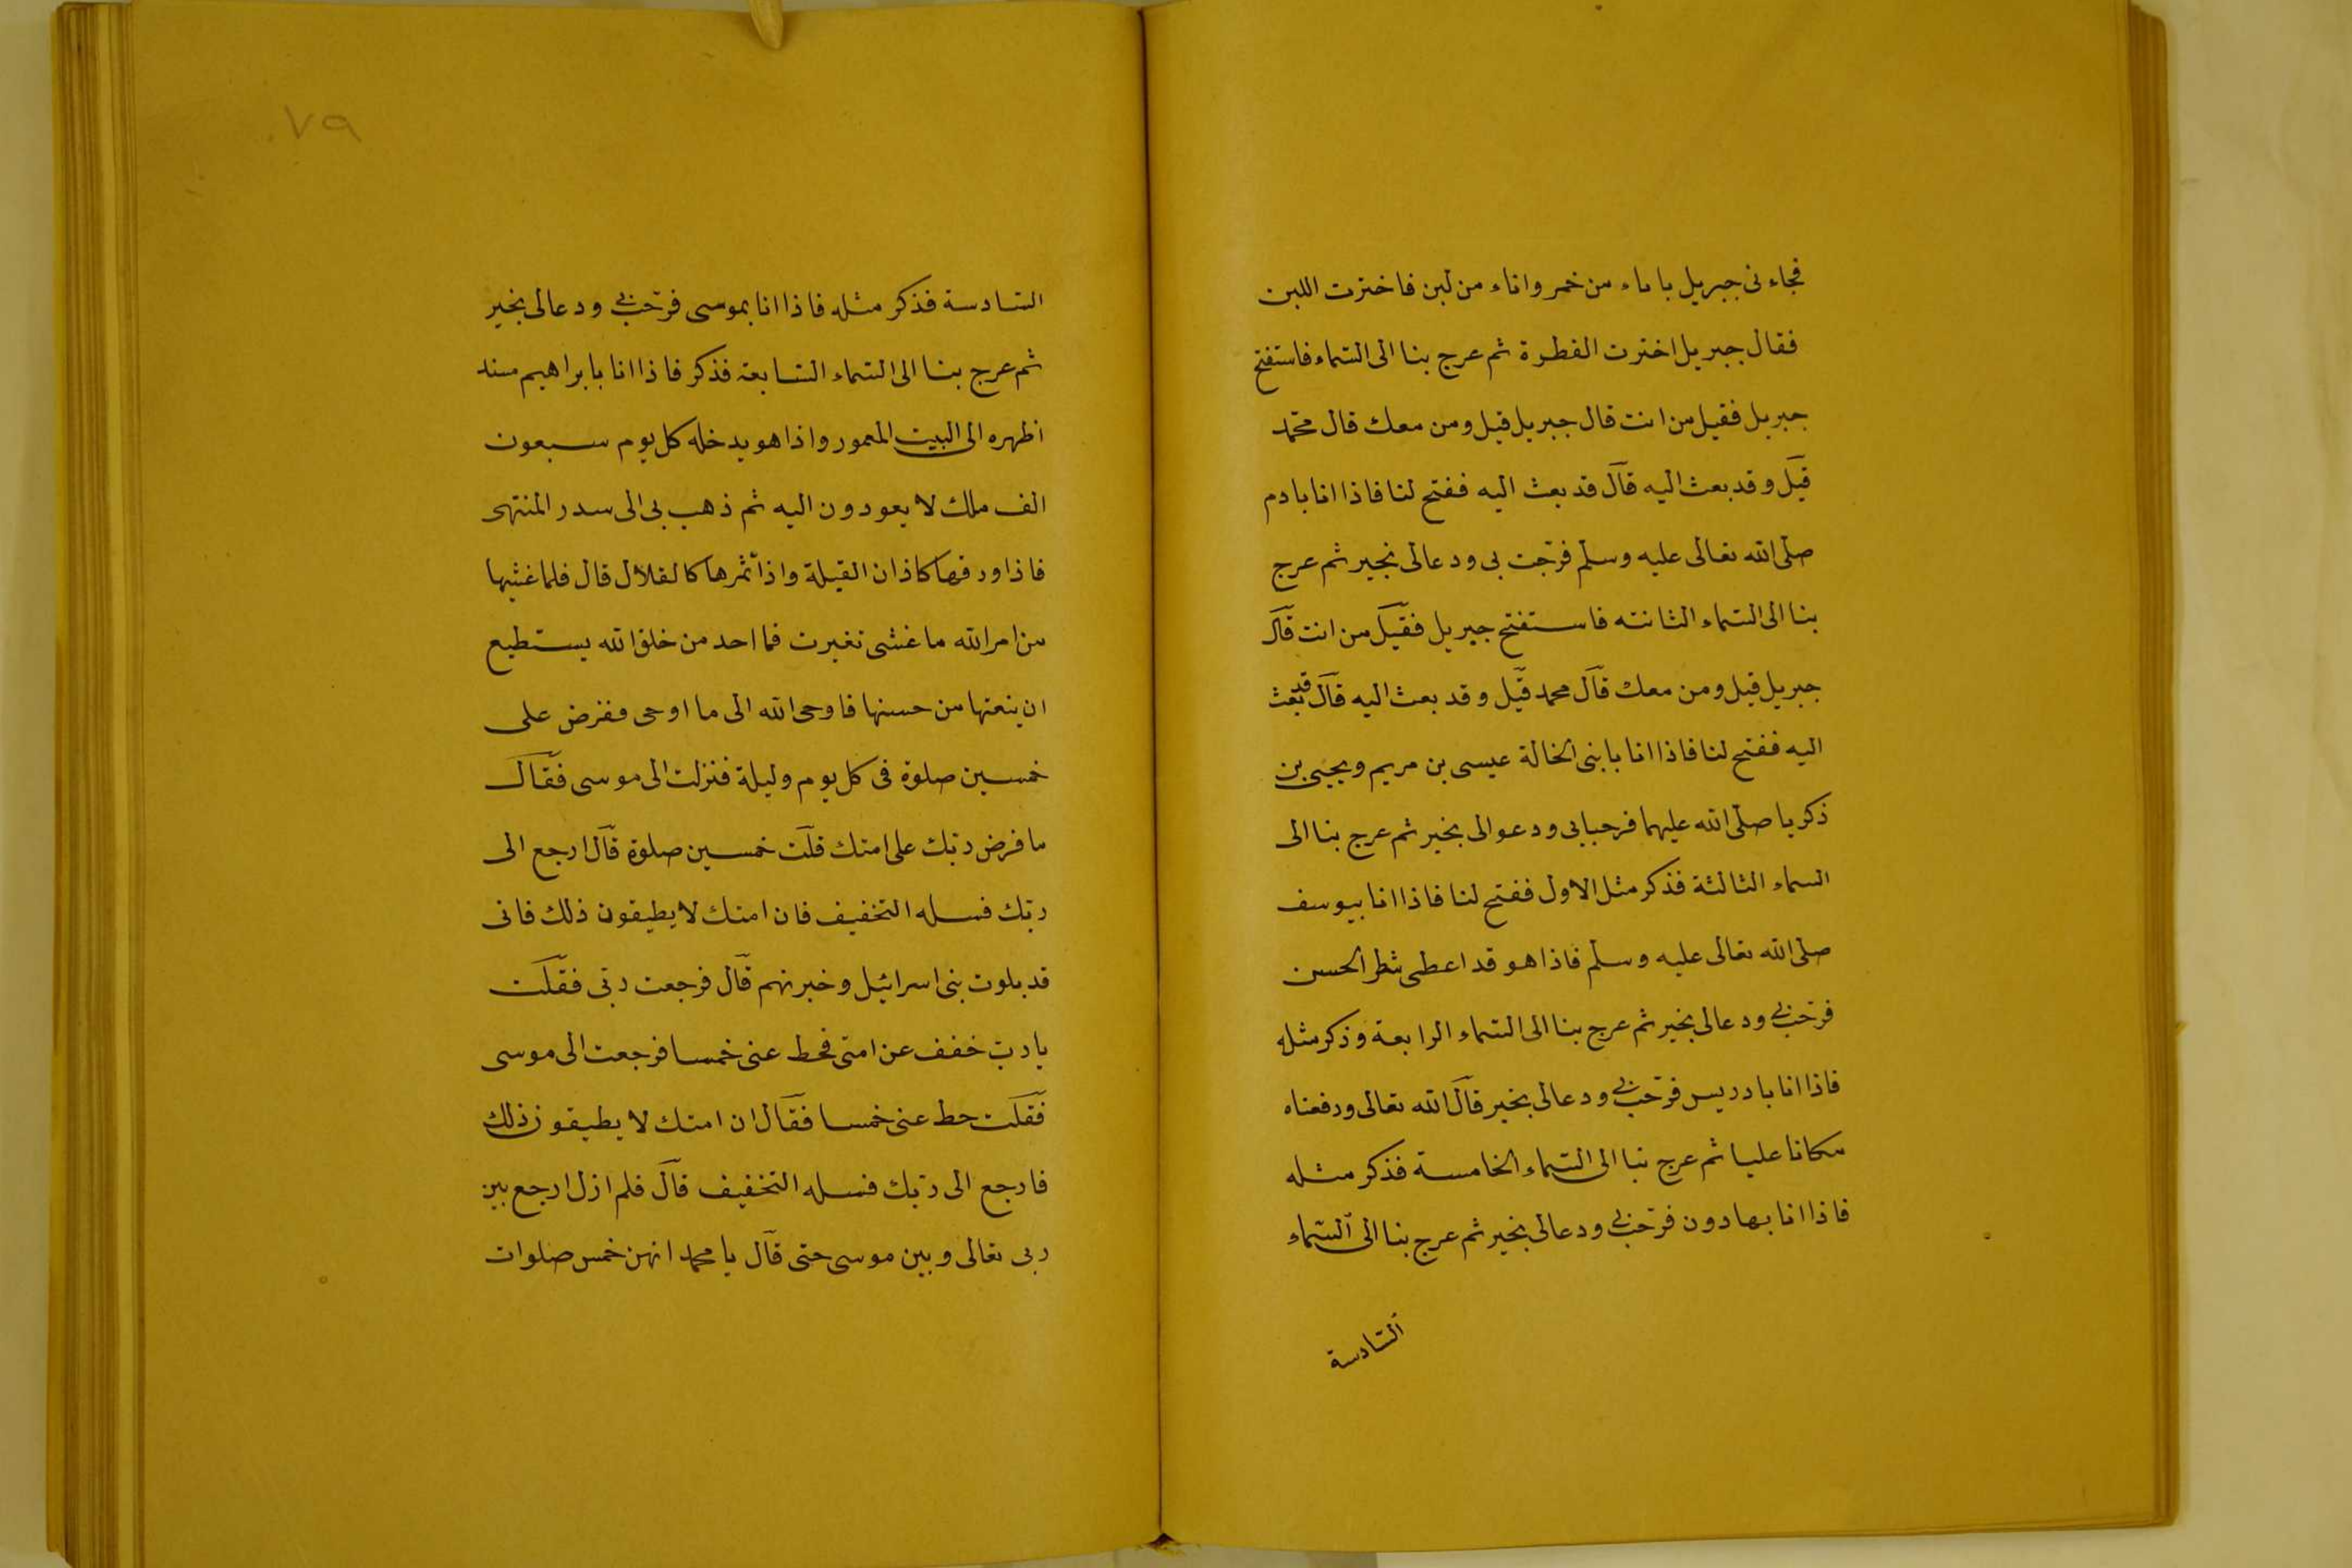 فجاءنى جبريل باناء من خمر واناء من لبن فاخترت اللبن
فقال جبريل اخترت الفطرة ثم عرج بنا الى السّماء فاستفتح
جبريل فقيل من انت قال جبريل قيل ومن معك قال محمّد
قيل وقد بعث اليه قال قد بعث اليه ففتح لنا فاذا انا بادم
صلّى الله تعالى عليه وسلّم فرحّب بى ودعالى بخير ثم عرج
بنا الى السّماء الثانته فاستفتح جبريل فقيل من انت قال
جبريل قيل ومن معك قال محمد قيل وقد بعث اليه قال قد بعث
اليه ففتح لنا فاذا انا بابنى الخالة عيسى بن مريم ويحيى بن
ذكريا صلّى الله عليهما فرحبابى ودعوالى بخير ثم عرج بنا الى
السماء الثالثة فذكر مثل الاول ففتح لنا فاذا انا بيوسف
صلّى الله تعالى عليه وسلّم فاذا هو قد اعطى شطر الحسن
فرحّب بى ودعالى بخير ثم عرج بنا الى السّماء الرابعة وذكر مثله
فاذا انا بادريس فرحّب بى ودعالى بخير قال الله تعالى ورفعناه
مكانا عليا ثم عرج بنا الى السّماء الخامسة فذكر مثله
فاذا انا بهارون فرحّب بى ودعالى بخير ثم عرج بنا الى السّماء
السّادسة
٧٩
السّادسة فذكر مثله فاذا انا بموسى فرحّب بى ودعالى بخير
ثم عرج بنا الى السّماء السّابعة فذكر فاذا انا بابراهيم مسند
اظهره الى البيت المعمور واذا هو يدخله كل يوم سبعون
الف ملك لا يعودون اليه ثم ذهب بى الى سدر المنتهى
فاذا ورقها كاذان الفيلة واذا ثمرها كالقلال قال فلما غشيها
من امر الله ما غشى تغيرت فما احد من خلق الله يستطيع
ان ينعتها من حسنها فاوحى الله الى ما اوحى ففرض على
خمسين صلوة فى كل يوم وليلة فنزلت الى موسى فقال
ما فرض ربّك على امتك قلت خمسين صلوة قال ارجع الى
ربّك فسله التخفيف فان امتك لا يطيقون ذلك فانى
قد بلوت بنى اسرائيل وخبرتهم قال فرجعت ربّى فقلت
يا ربّ خفف عن امتى فحط عنى خمسا فرجعت الى موسى
فقلت حط عنى خمسا فقال ان امتك لا يطيقون ذلك
فارجع الى ربّك فسله التخفيف قال فلم ازل ارجع بين
ربى تعالى وبين موسى حتى قال يا محمد انهن خمس صلوات